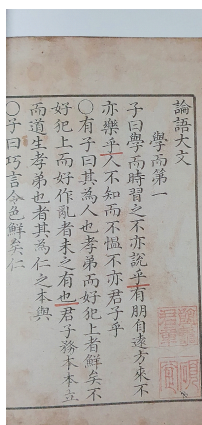 論語大文
學而第一
子曰學而時習之不亦說乎有朋自遠方來不
亦樂乎人不知而不慍不亦君子乎
〇有子曰其為人也孝弟而好犯上者鮮矣不
好犯上而好作亂者未之有也君子務本本立
而道生孝弟也者其為仁之本與
〇子曰巧言令色鮮矣仁